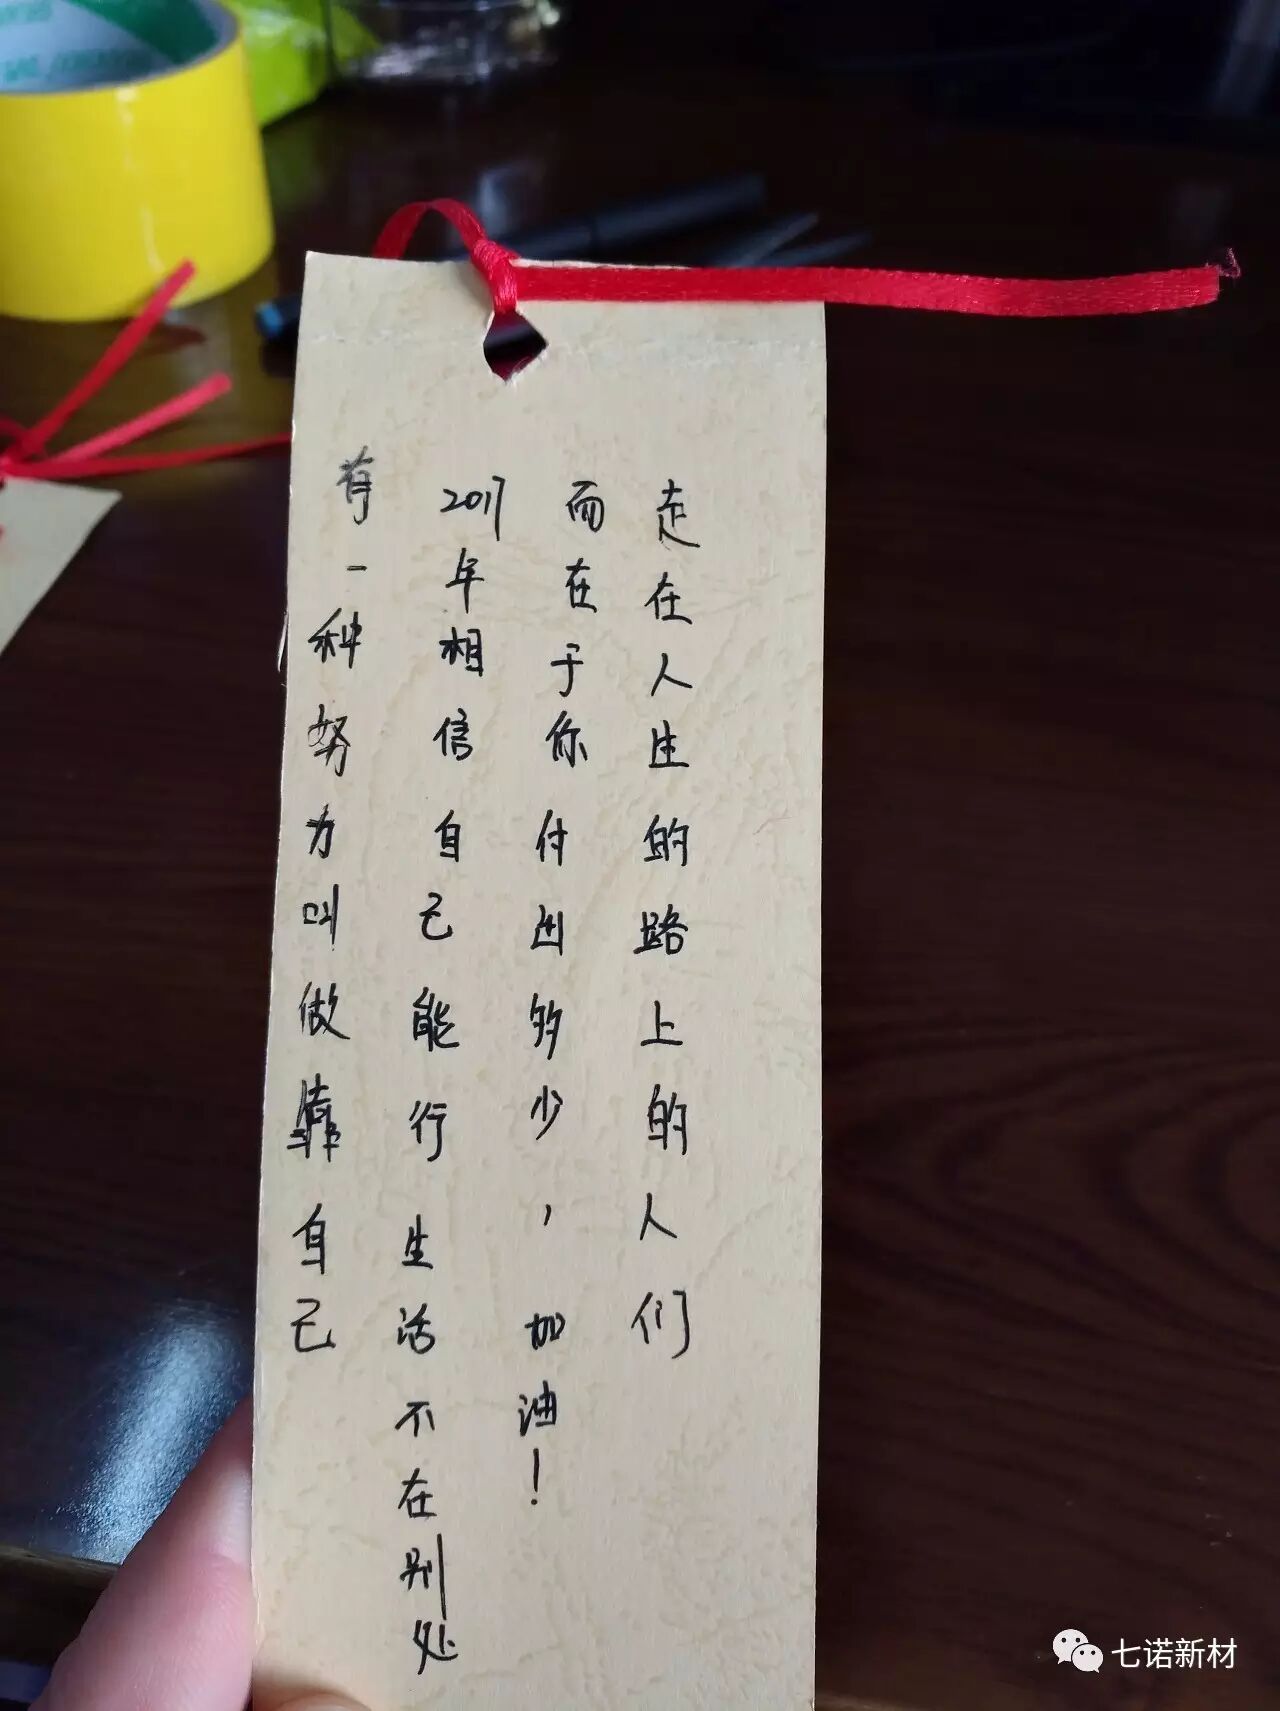 有一种努力叫做靠自己
2017年相信自己能行生活不在别处
而在于你付出多少，加油！
走在人生的路上的人们
七诺新材